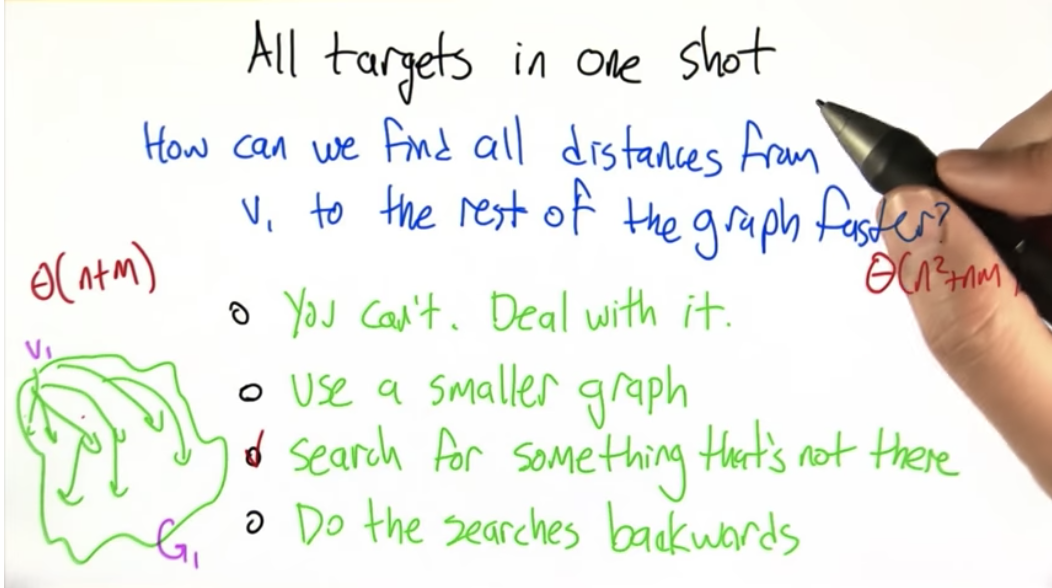 All targets in one shot
How can we find all distances from
v₁ to the rest of the graph faster?
Θ(n+m)
Θ(n²+nm)
You can't. Deal with it.
v₁
Use a smaller graph
search for something that's not there
Do the searches backwards
G₁